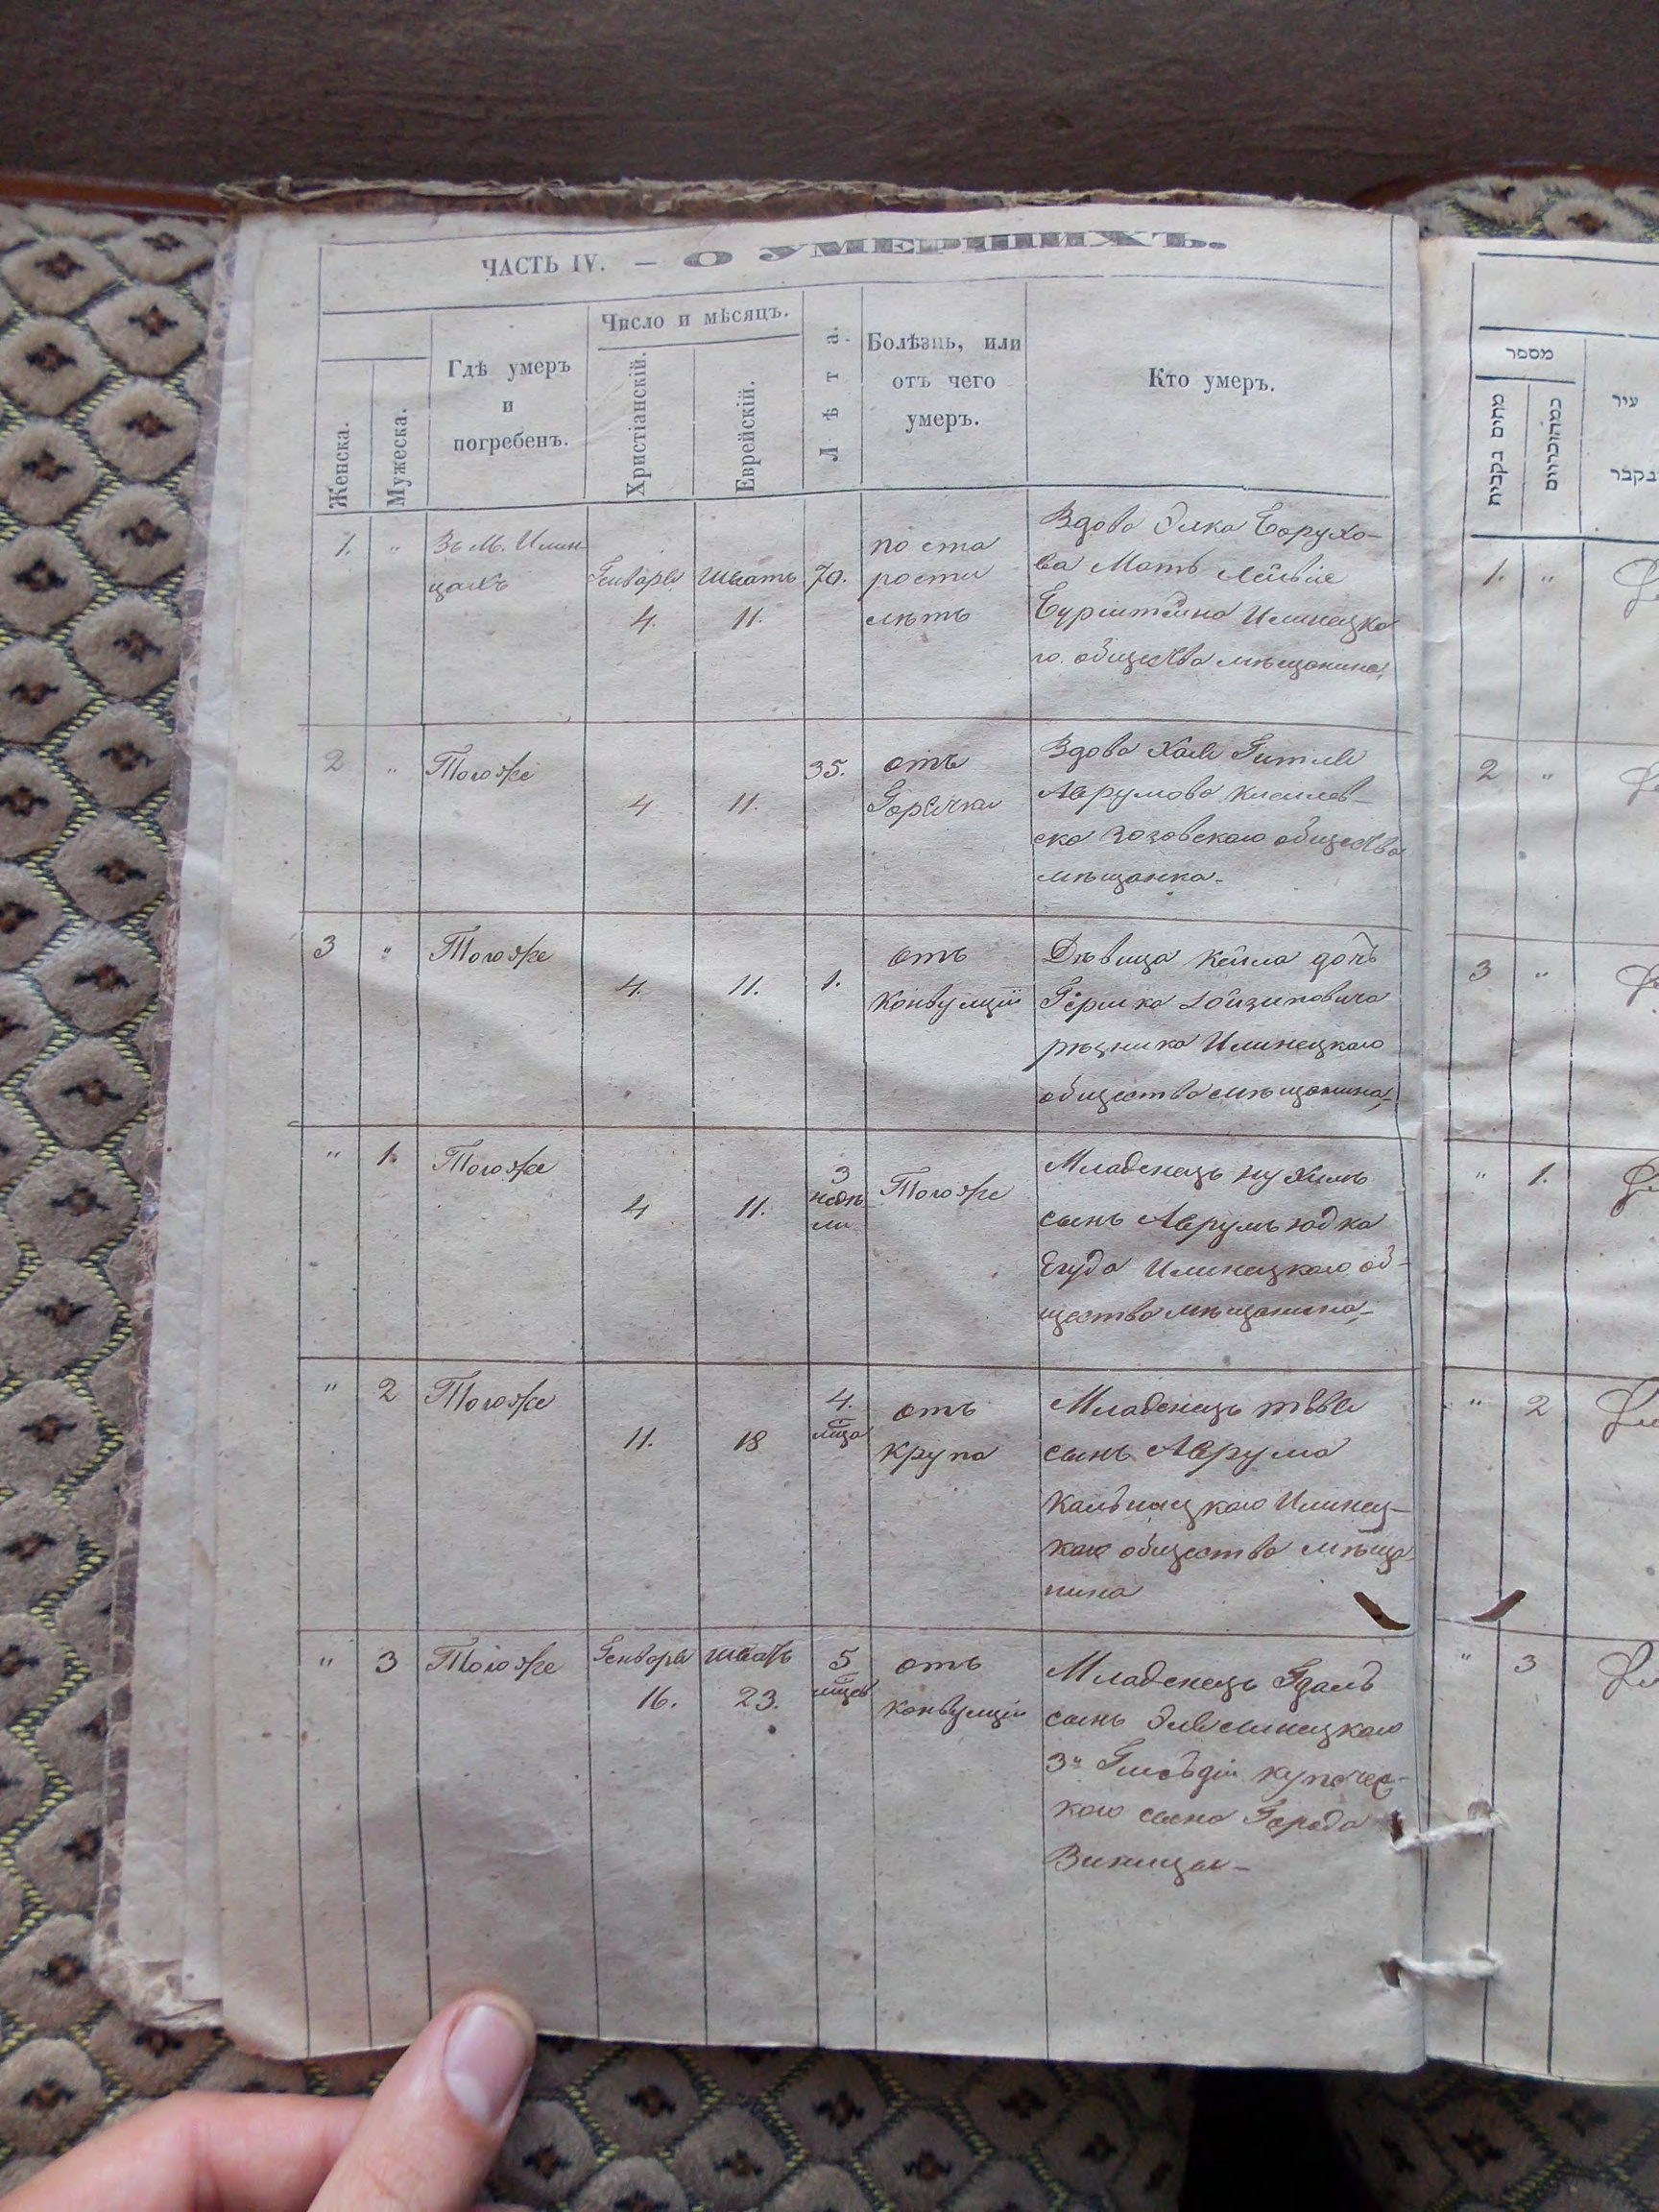 ЧАСТЬ IV. — О УМЕРШИХЪ.
Женска.
Мужеска.
Гдѣ умеръ
и
погребенъ.
Число и мѣсяцъ.
Христіанскій.
Еврейскій.
Лѣта.
Болѣзнь, или
отъ чего
умеръ.
Кто умеръ.
1. " Въ М. Илин-
цахъ
Генваря 4. Шватъ 11. 70.
по ста
рости
лѣтъ
Вдова Элка Борухо-
ва Мать Лейвіе
Бурштейна Илинецка
го общества мѣщанина,
2 " Тогоже 4 11. 35.
отъ
Горячки
Вдова Хая Гитля
Аврумова
ска Зозовскаго общества
мѣщанка-
3 " Тогоже 4. 11. 1.
отъ
Конвулціи
Дѣвица Кейла дочь
Гершка
рѣзника Илинецкаго
общества мѣщанина,-
" 1. Тогоже 4 11.
3
недѣ
ли
Тогоже
Младенецъ Нухимъ
сынъ Аврумъ Юдка
Егуда Илинецкаго об-
щества мѣщанина,-
" 2 Тогоже 11. 18
4.
мца
отъ
крупа
Младенецъ
сынъ Аврума
Кальницкаго Илинец-
каго общества мѣща
нина
" 3 Тогоже Генваря 16. Шватъ 23.
5
мцевъ
отъ
конвулціи
Младенецъ Гдаль
сынъ Эля
3й Гильдіи купечес-
каго сына Города
Винницы-
מספר
מתים נקבות
עיר
1. "
2 "
3 "
" 1.
" 2
" 3